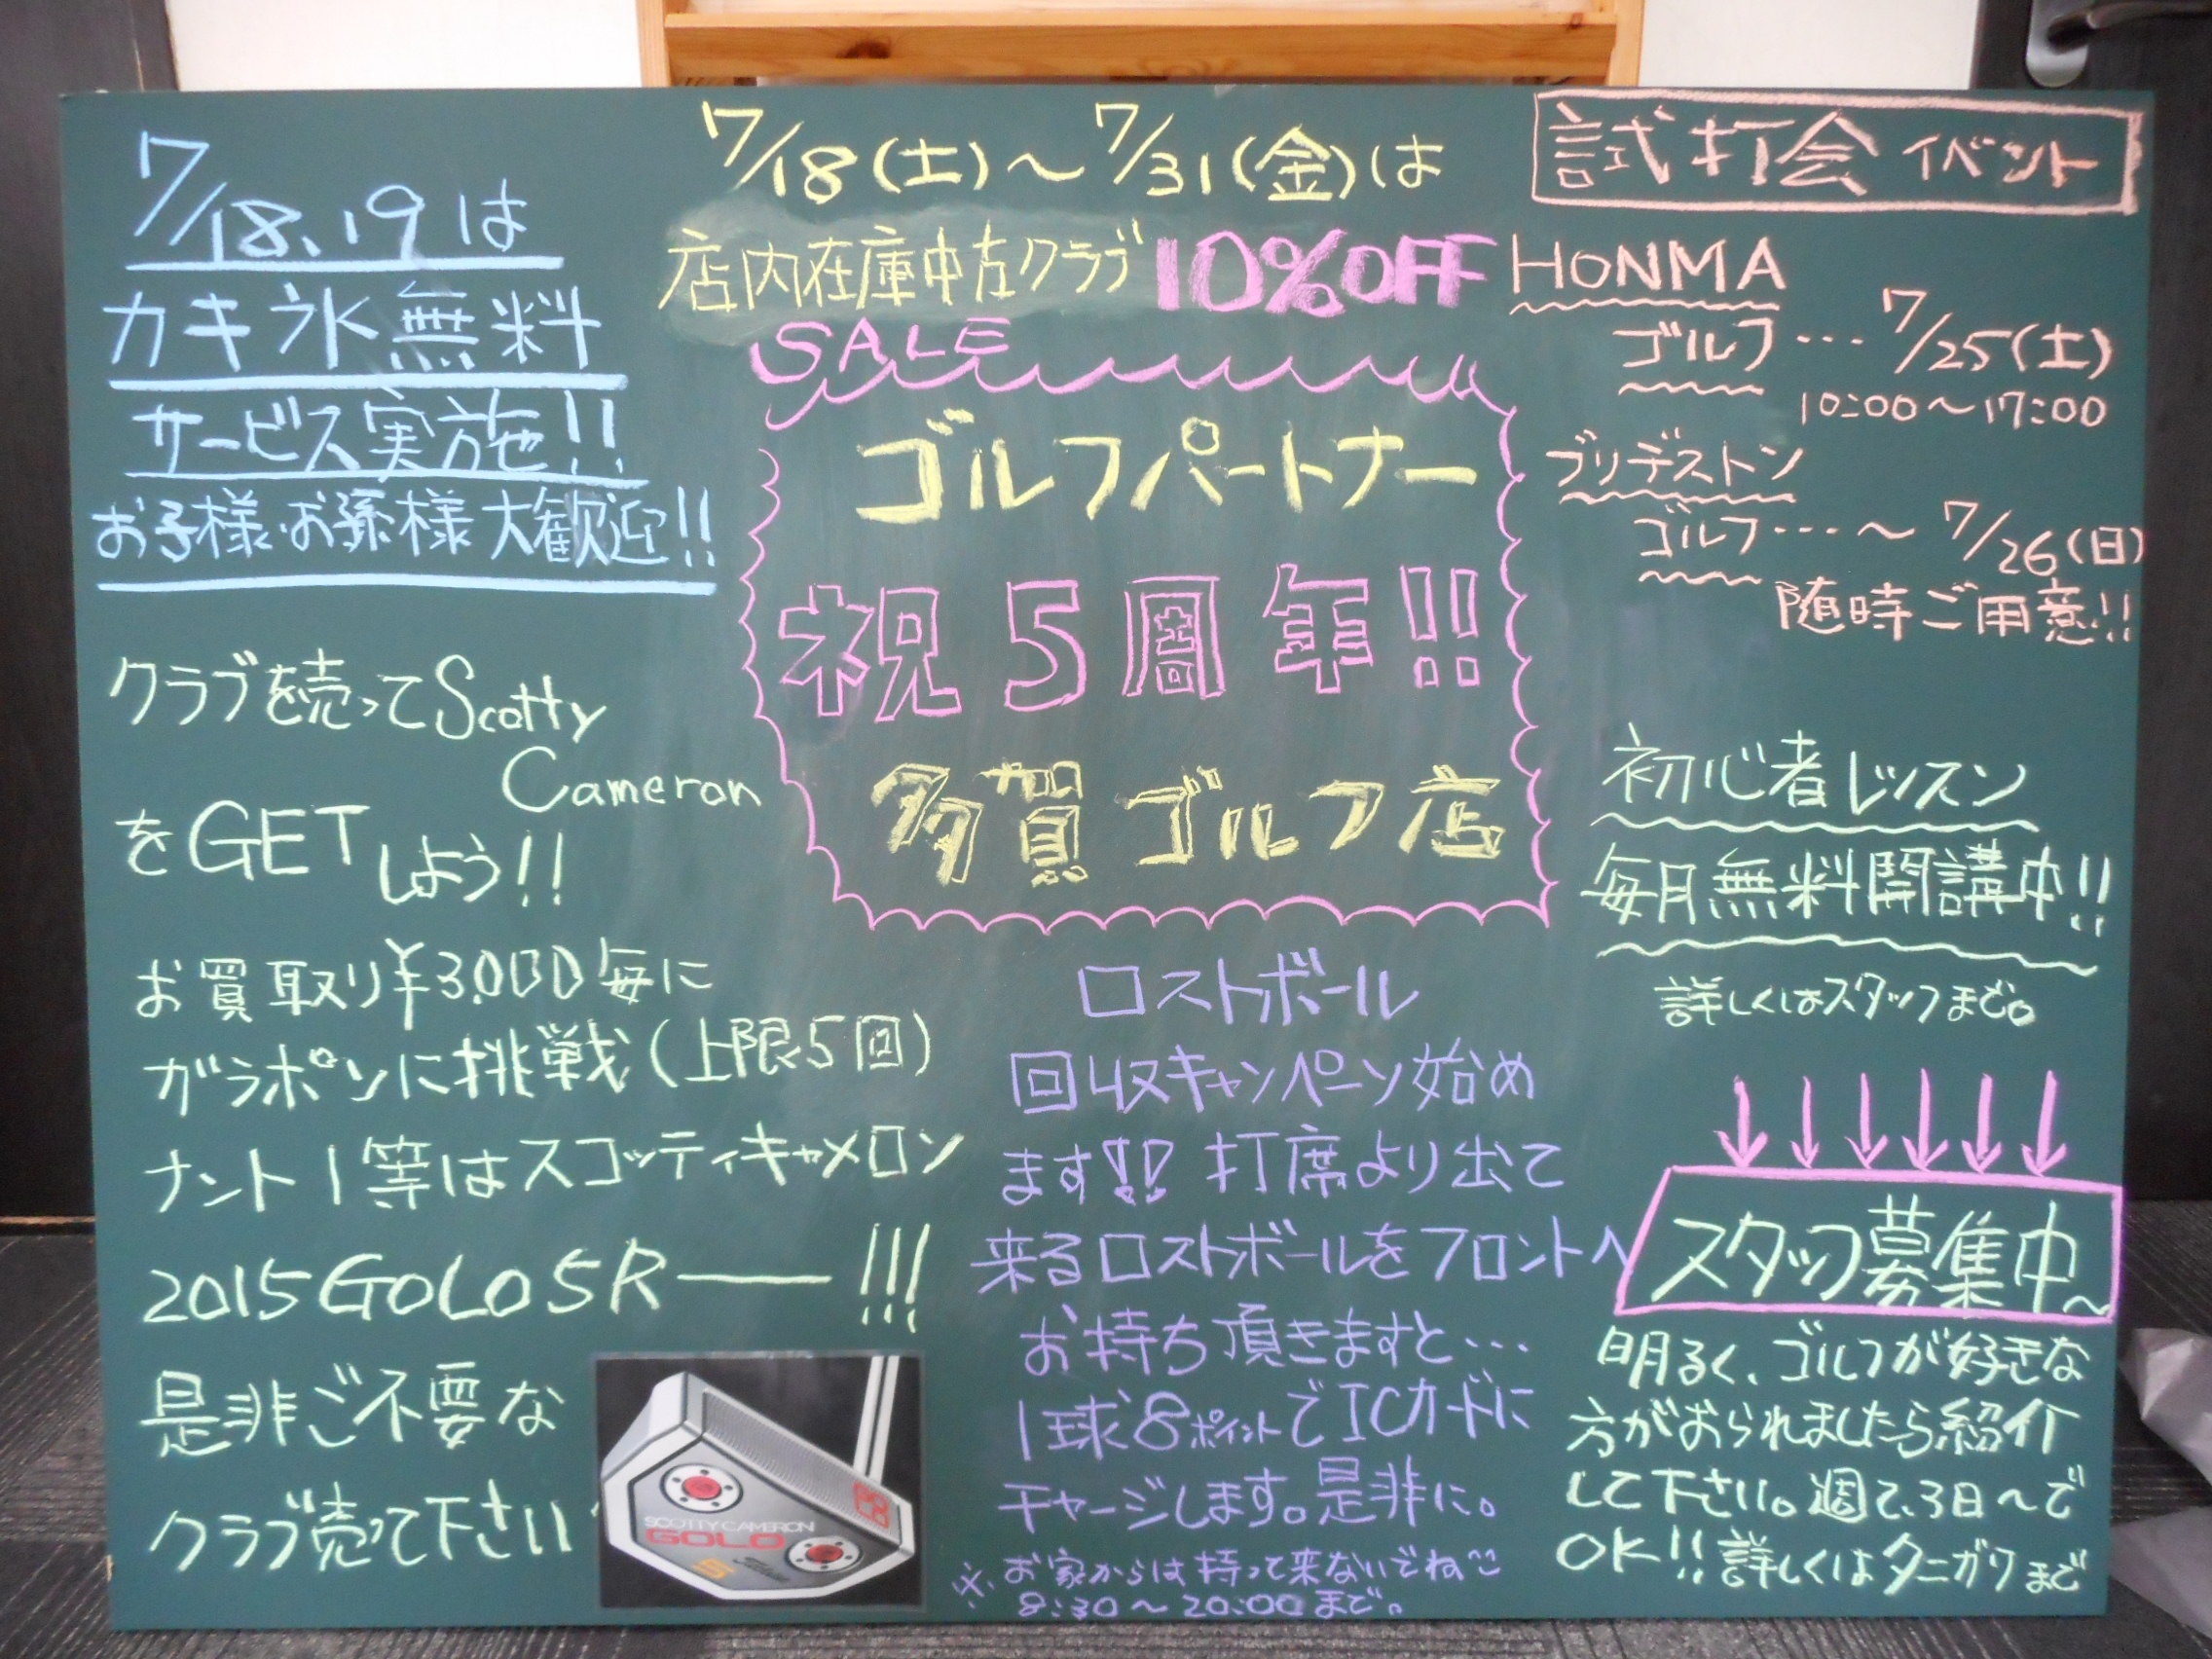 7/18、19は
カキ氷無料
サービス実施!!
お子様・お孫様大歓迎!!
クラブを売ってScotty
Cameron
をGETしよう!!
お買取り¥3,000毎に
ガラポンに挑戦(上限5回)
ナント1等はスコッティキャメロン
2015 GOLO 5R ー!!!
是非ご不要な
クラブ売って下さい
SCOTTY CAMERON
GOLO
5
7/18(土)～7/31(金)は
店内在庫中古クラブ10%OFF
SALE
ゴルフパートナー
祝5周年!!
多賀ゴルフ店
ロストボール
回収キャンペーン始め
ます!! 打席より出て
来るロストボールをフロントへ
お持ち頂きますと…
1球8ポイントでICカードに
チャージします。是非に。
※お家からは持って来ないでね
8:30～20:00まで。
試打会イベント
HONMA
ゴルフ…7/25(土)
10:00～17:00
ブリヂストン
ゴルフ…～7/26(日)
随時ご用意!!
初心者レッスン
毎月無料開講中!!
詳しくはスタッフまで。
スタッフ募集中～
明るく、ゴルフが好きな
方がおられましたら紹介
して下さい。週2、3日～で
OK!! 詳しくはタニガワまで